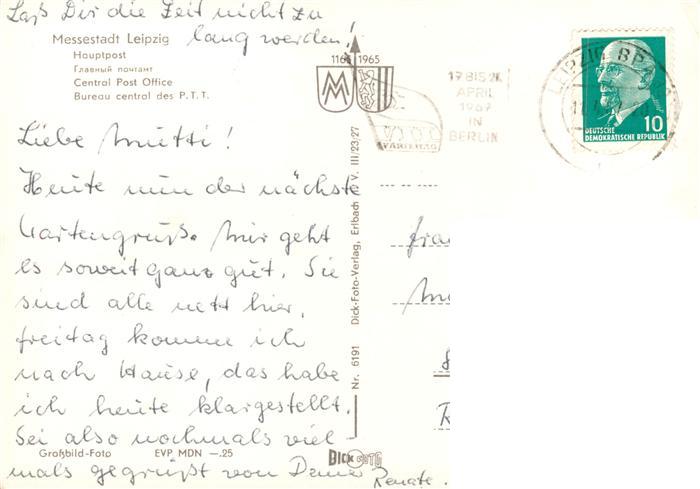 Laß Dir die Zeit nicht zu
lang werden!
Messestadt Leipzig
Hauptpost
Главный почтамт
Central Post Office
Bureau central des P. T. T.
1165 1965
MM
17 BIS 21.
APRIL
1967
IN
BERLIN
VII.
PARTEITAG
LEIPZIG BPA
10
DEUTSCHE
DEMOKRATISCHE REPUBLIK
Liebe Mutti!
Heute nun der nächste
Kartengruß. Mir geht
es soweit ganz gut. Sie
sind alle nett hier.
Freitag komme ich
nach Hause, das habe
ich heute klargestellt.
Sei also nochmals viel-
mals gegrüßt von Deiner Renate.
Nr. 6191 Dick-Foto-Verlag, Erlbach V. III/23/27
Großbild-Foto EVP MDN —.25
DICK FOTO